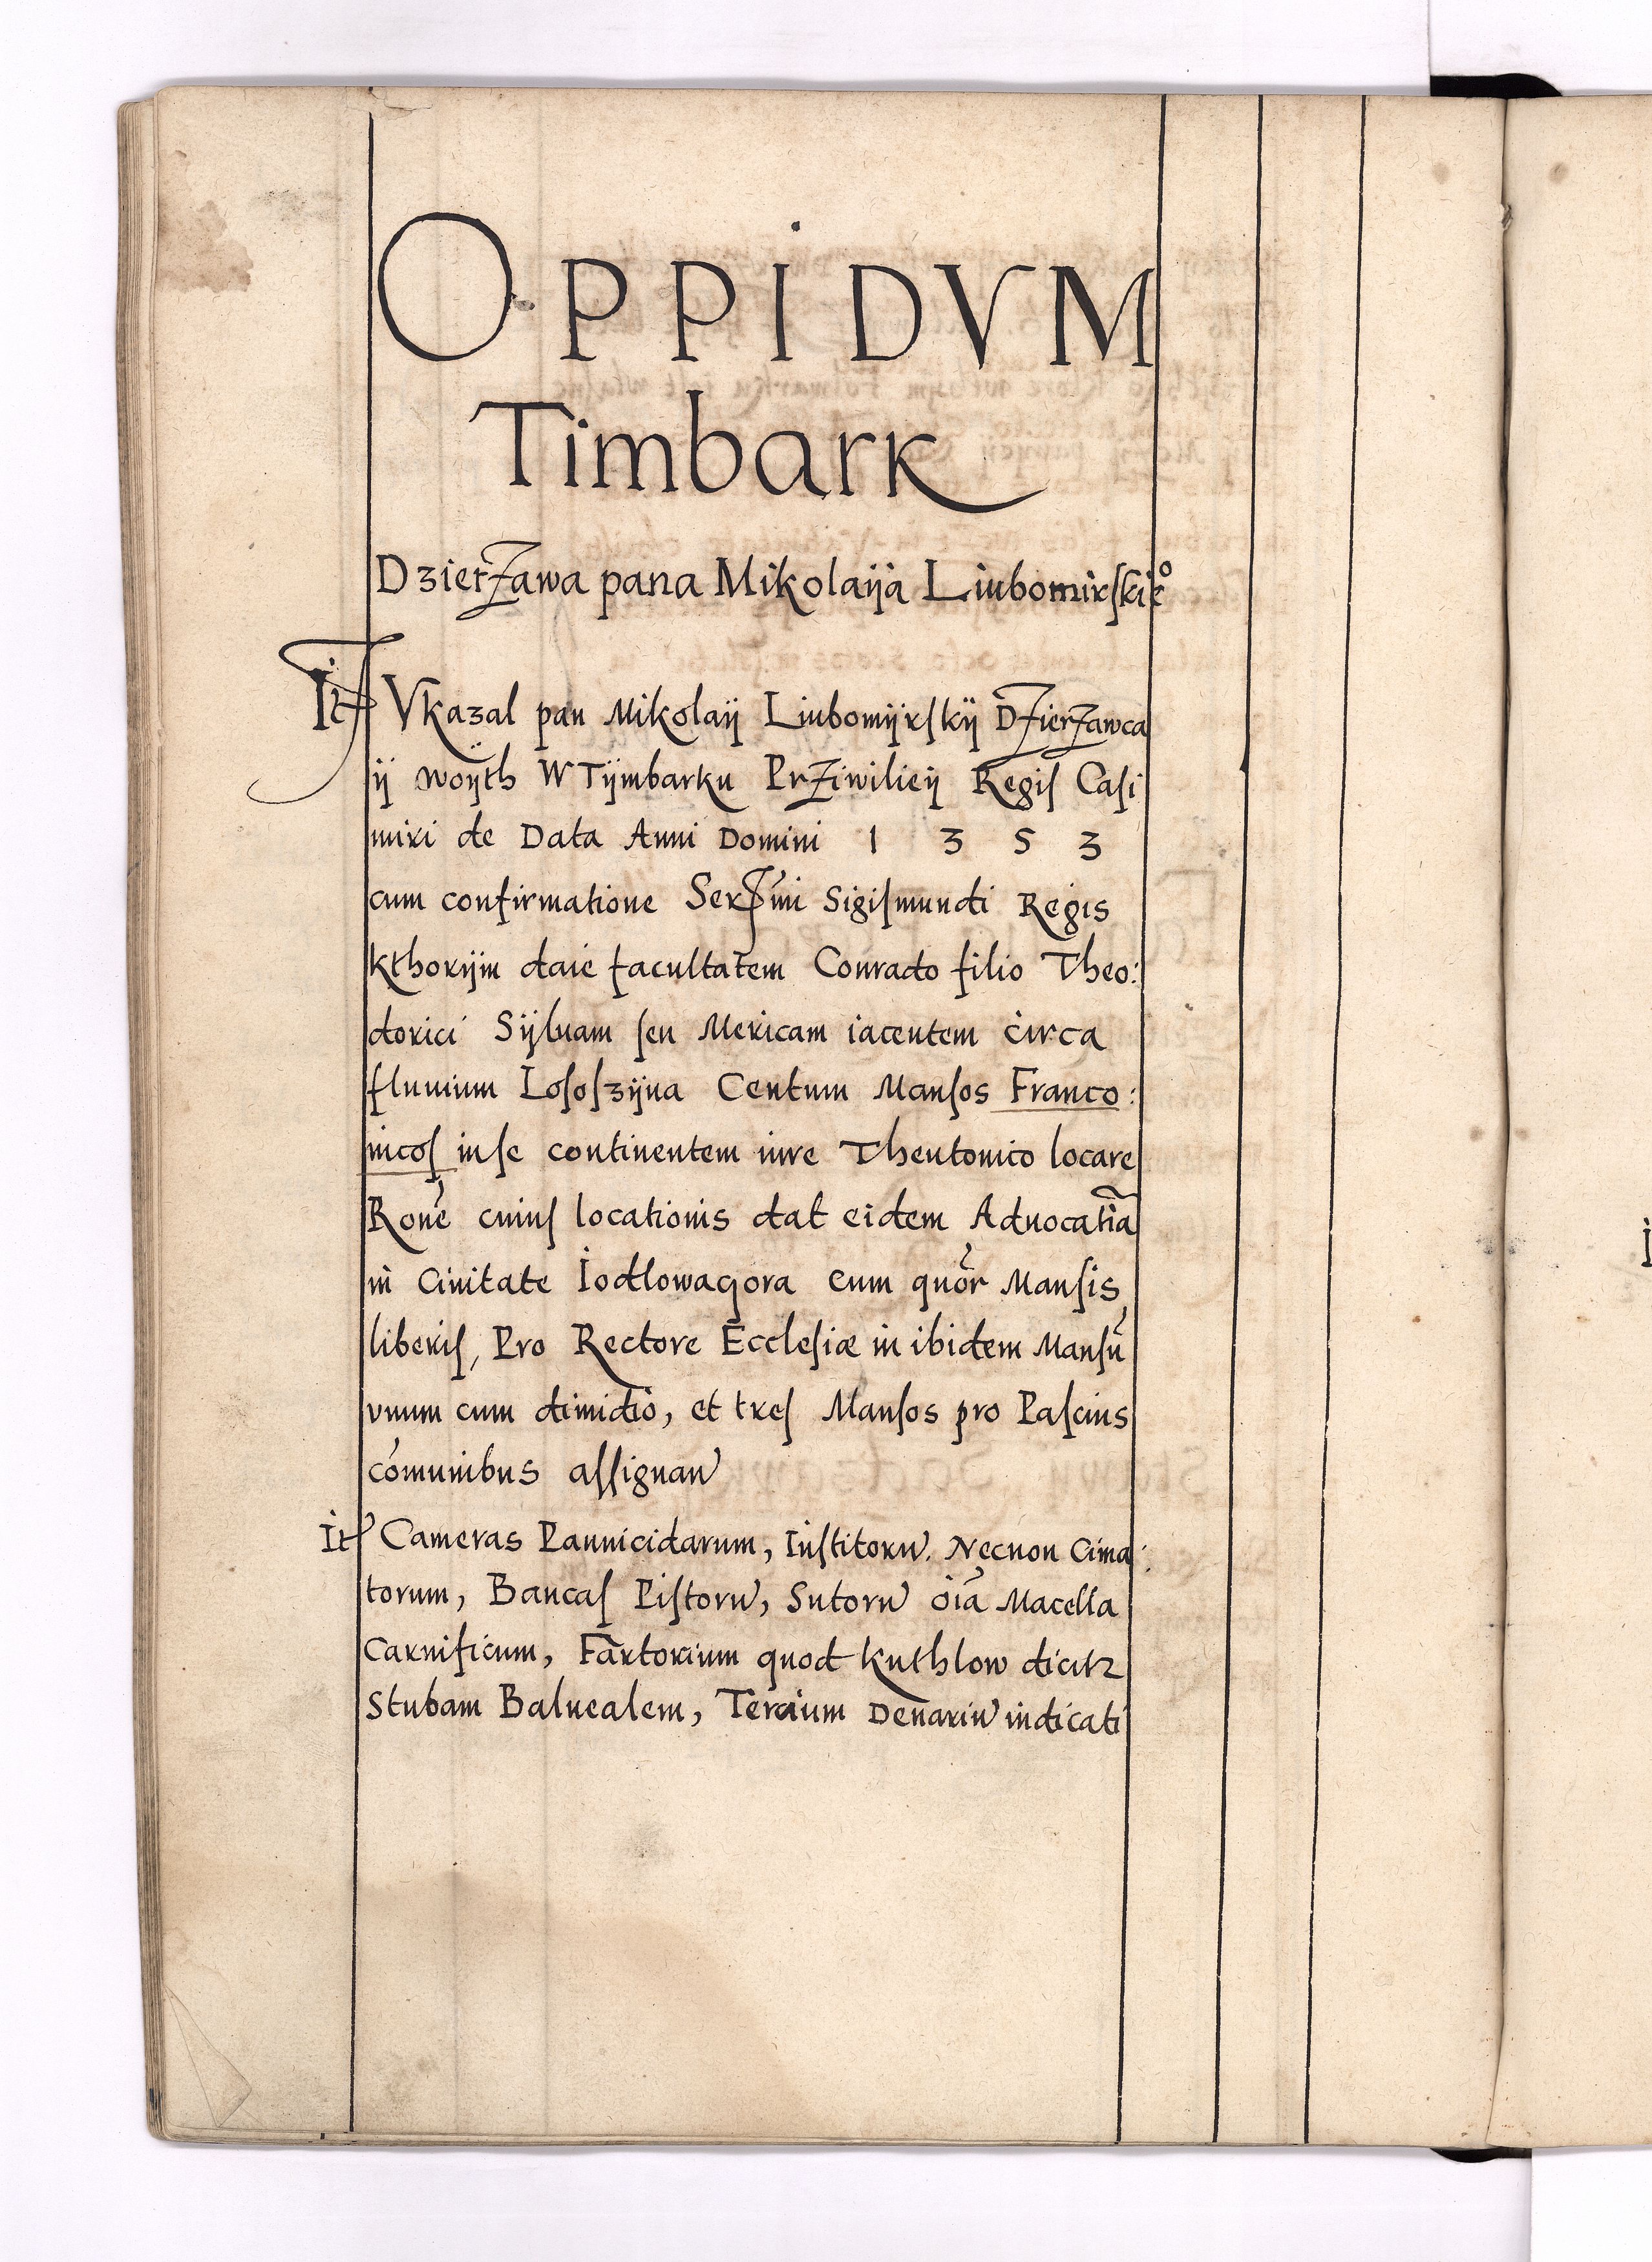 OPPIDVM
Timbark
Dzierzawa pana Mikolaija Liubomirskie°
It Vkazal pan Mikolaij Liubomijrskij Dzierzawca
ij woijth W Tijmbarku Prziwilieij Regis Casi
miri de Data Anni Domini 1 3 5 3
cum confirmatione Serssmi Sigismundi Regis
kthorijm daie facultatem Conrado filio Theo:
dorici Sijluam seu Mericam iacentem circa
fluuium Lososzijna Centum Mansos Franco:
nicos inse continentem iure Theutonico locare
Rone cuius locationis dat eidem Aduocatiã
in Ciuitate Iodlowagora cum quor Mansis
liberis, Pro Rectore Ecclesiæ in ibidem Mansũ
vnum cum dimidio, et tres Mansos pro Pascuis
comunibus assignan
It Cameras Pannicidarum, Institoru. Necnon Cima:
torum, Bancas Pistoru, Sutoru oia Macella
Carnificum, Fartorium quod kuthlow dicitr
Stubam Balnealem, Tercium Denariu iudicati